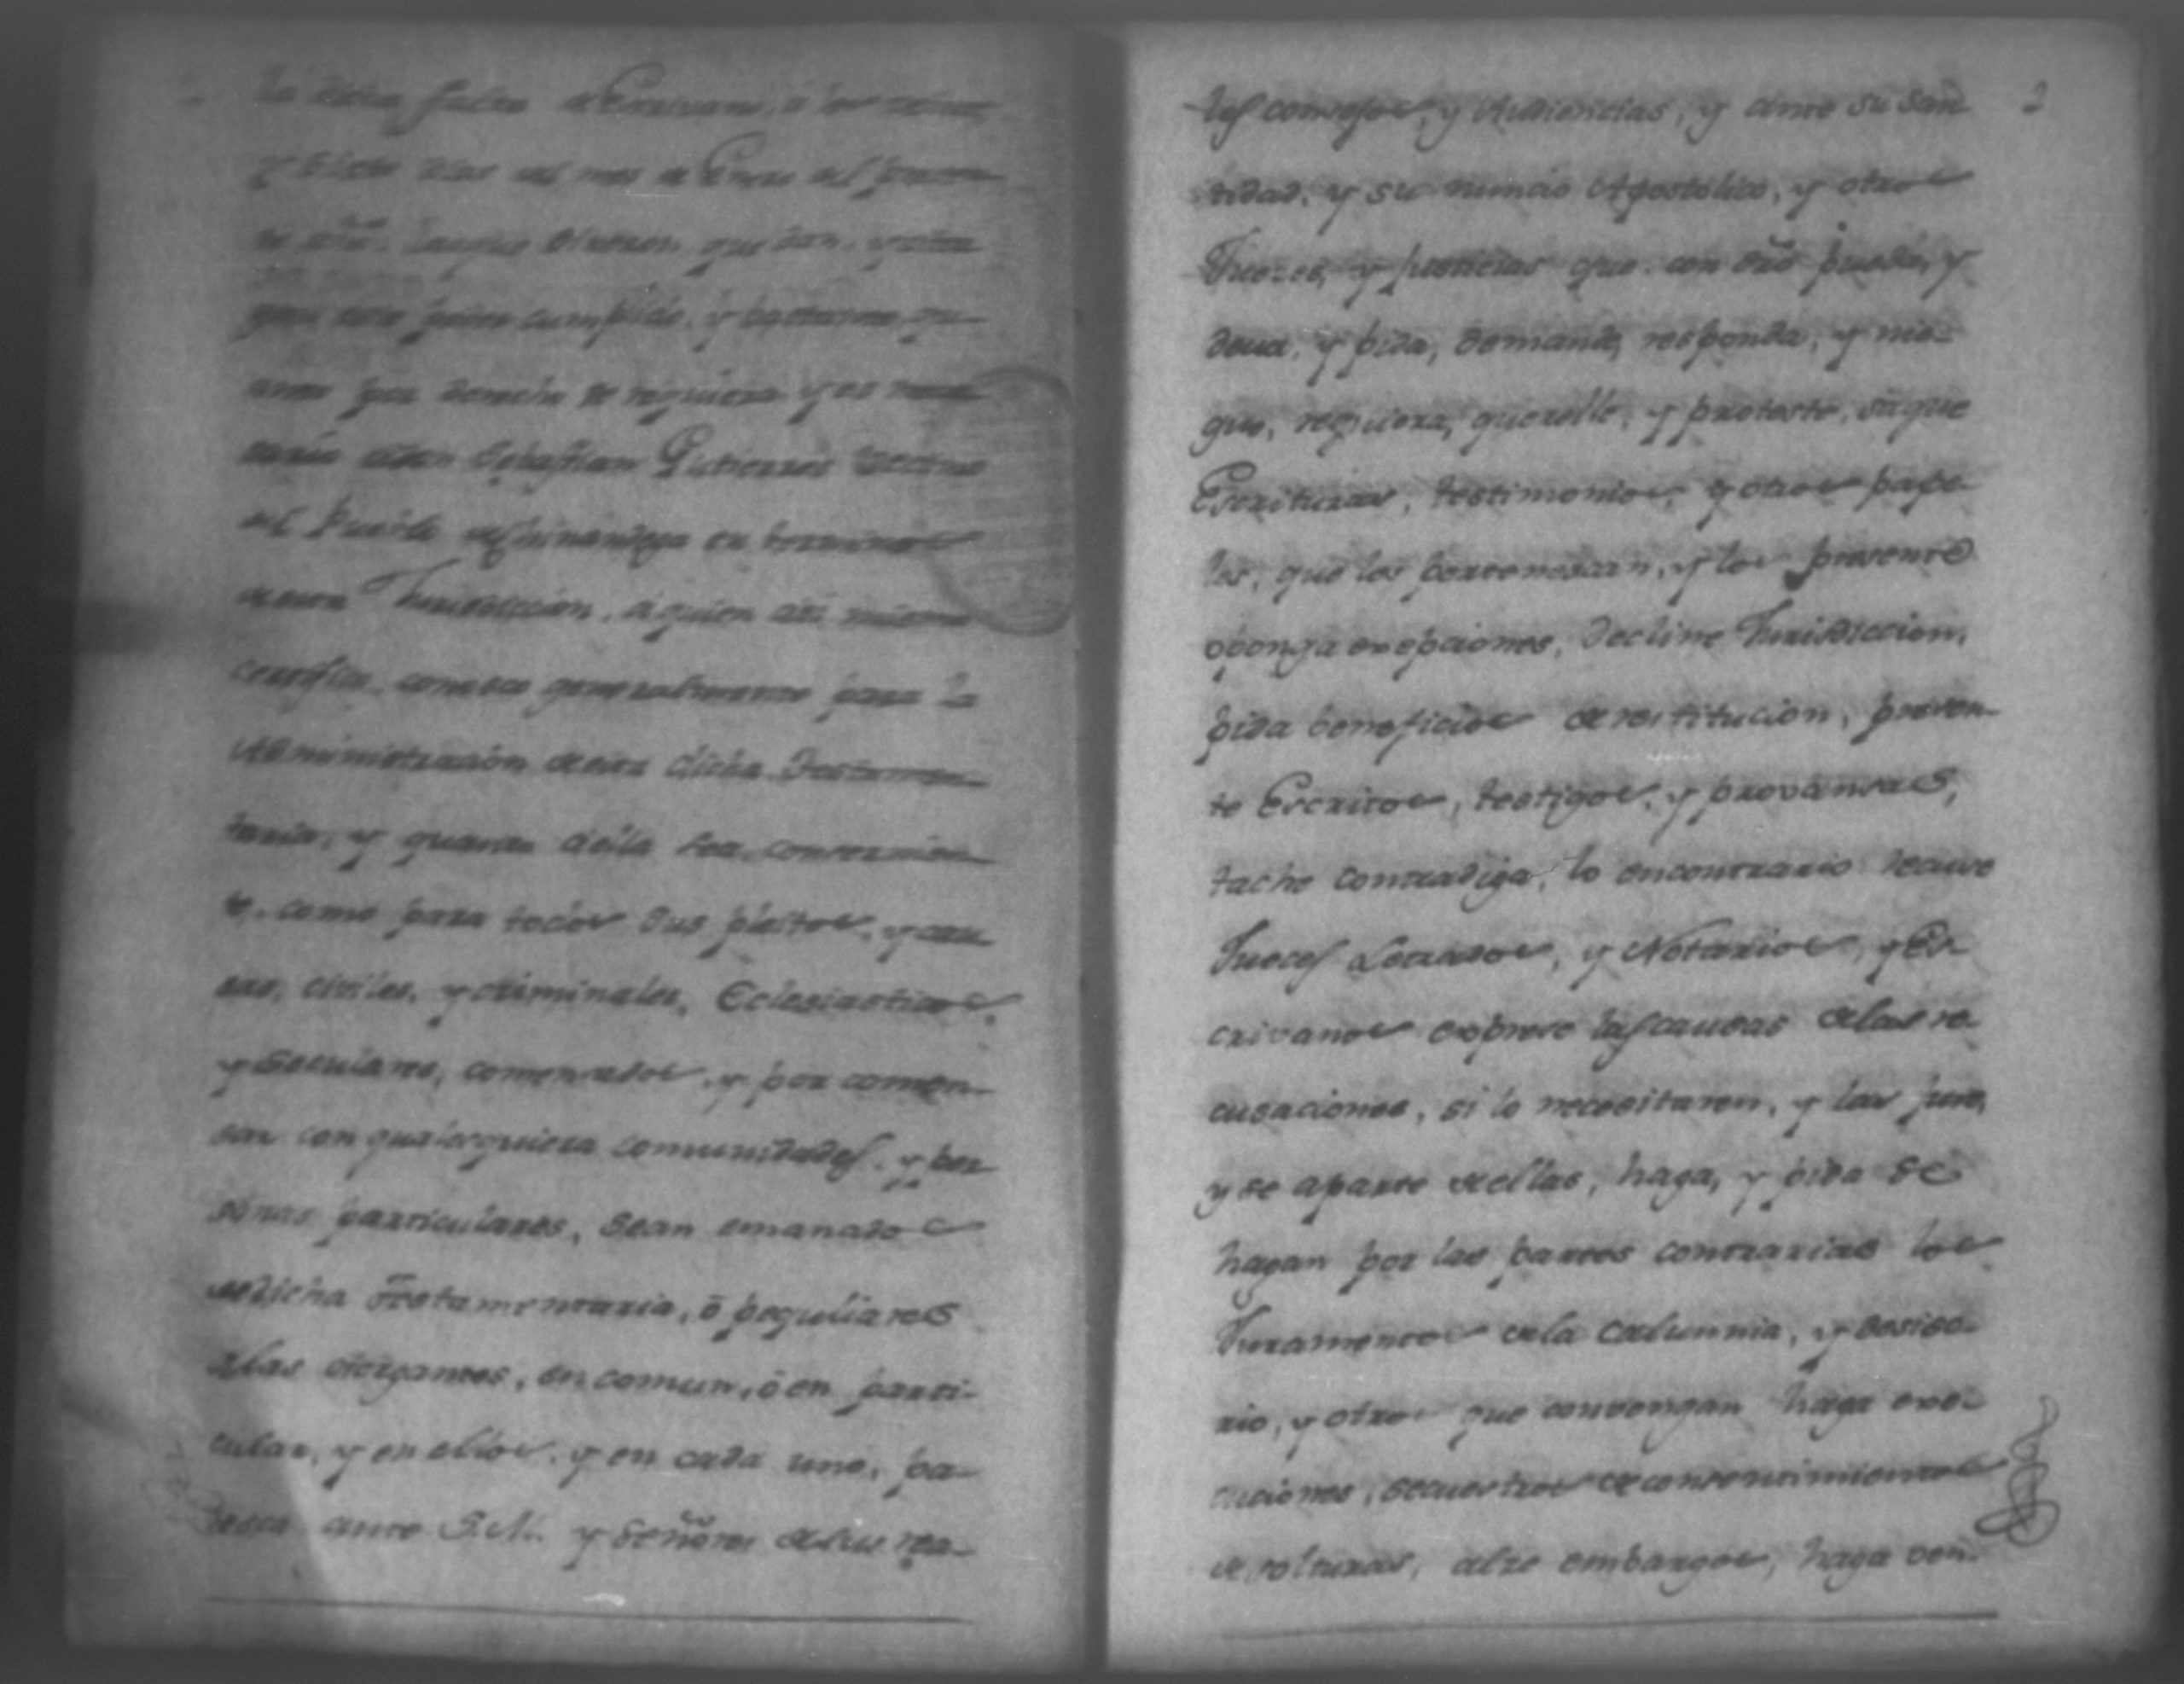 la dicha falta de Escrivano, á los veinte
y siete dias del mes de Enero del presen-
te añò. Laque dixeron que dan, y otor
gan todo poder cumplido, y bastante qu-
anto por derecho se requiera y es nece
sario á Don Sebastian Gutierrez vecino
del Pueblo de Chinandega en terminos
de esta Jurisdiccion, á quien asi mismo
certifico conosco generalmente para la
Administracion de esta dicha Testamen-
taria, y quanto á ella sea, concernien-
te, como para todos sus pleitos, y cau
sas, civiles, y criminales, Eclesiasticos,
y Seculares, comensados, y por comen-
sar con qualesquiera comunidades, y per
sonas particulares, sean emanados
de dicha Testamentaria, ó peculiares
de las otorgantes, en comun, ó en parti-
cular, y en ellos, y en cada uno, pa-
resca ante S.M. y Señores de sus rea-
2
les consejos, y Audiencias, y ante su San
tidad, y su nuncio Apostolico, y otros
Jueces, y justicias que con dro pueda, y
deva, y pida, demande, responda, y nie-
gue, requiera, querelle, y proteste, saque
Escrituras, testimonios, y otros pape-
les, que les pertenescan, y los presente
oponga exepciones, decline Jurisdiccion,
pida beneficios de restitucion, presen-
te Escritos, testigos, y provansas,
tache contradiga, lo encontrario recuse
Jueces Letrados, y Notarios, y Es-
crivanos exprese las causas de las re-
cusaciones, si lo necesitaren, y las jure,
y se aparte de ellas, haga, y pida se
hagan por las partes contrarias los
Juramentos de la calumnia, y desiso-
rio, y otros que convengan haga exe-
cuciones, secuestros de consentimientos
de solturas, alze embargos, haga ven-